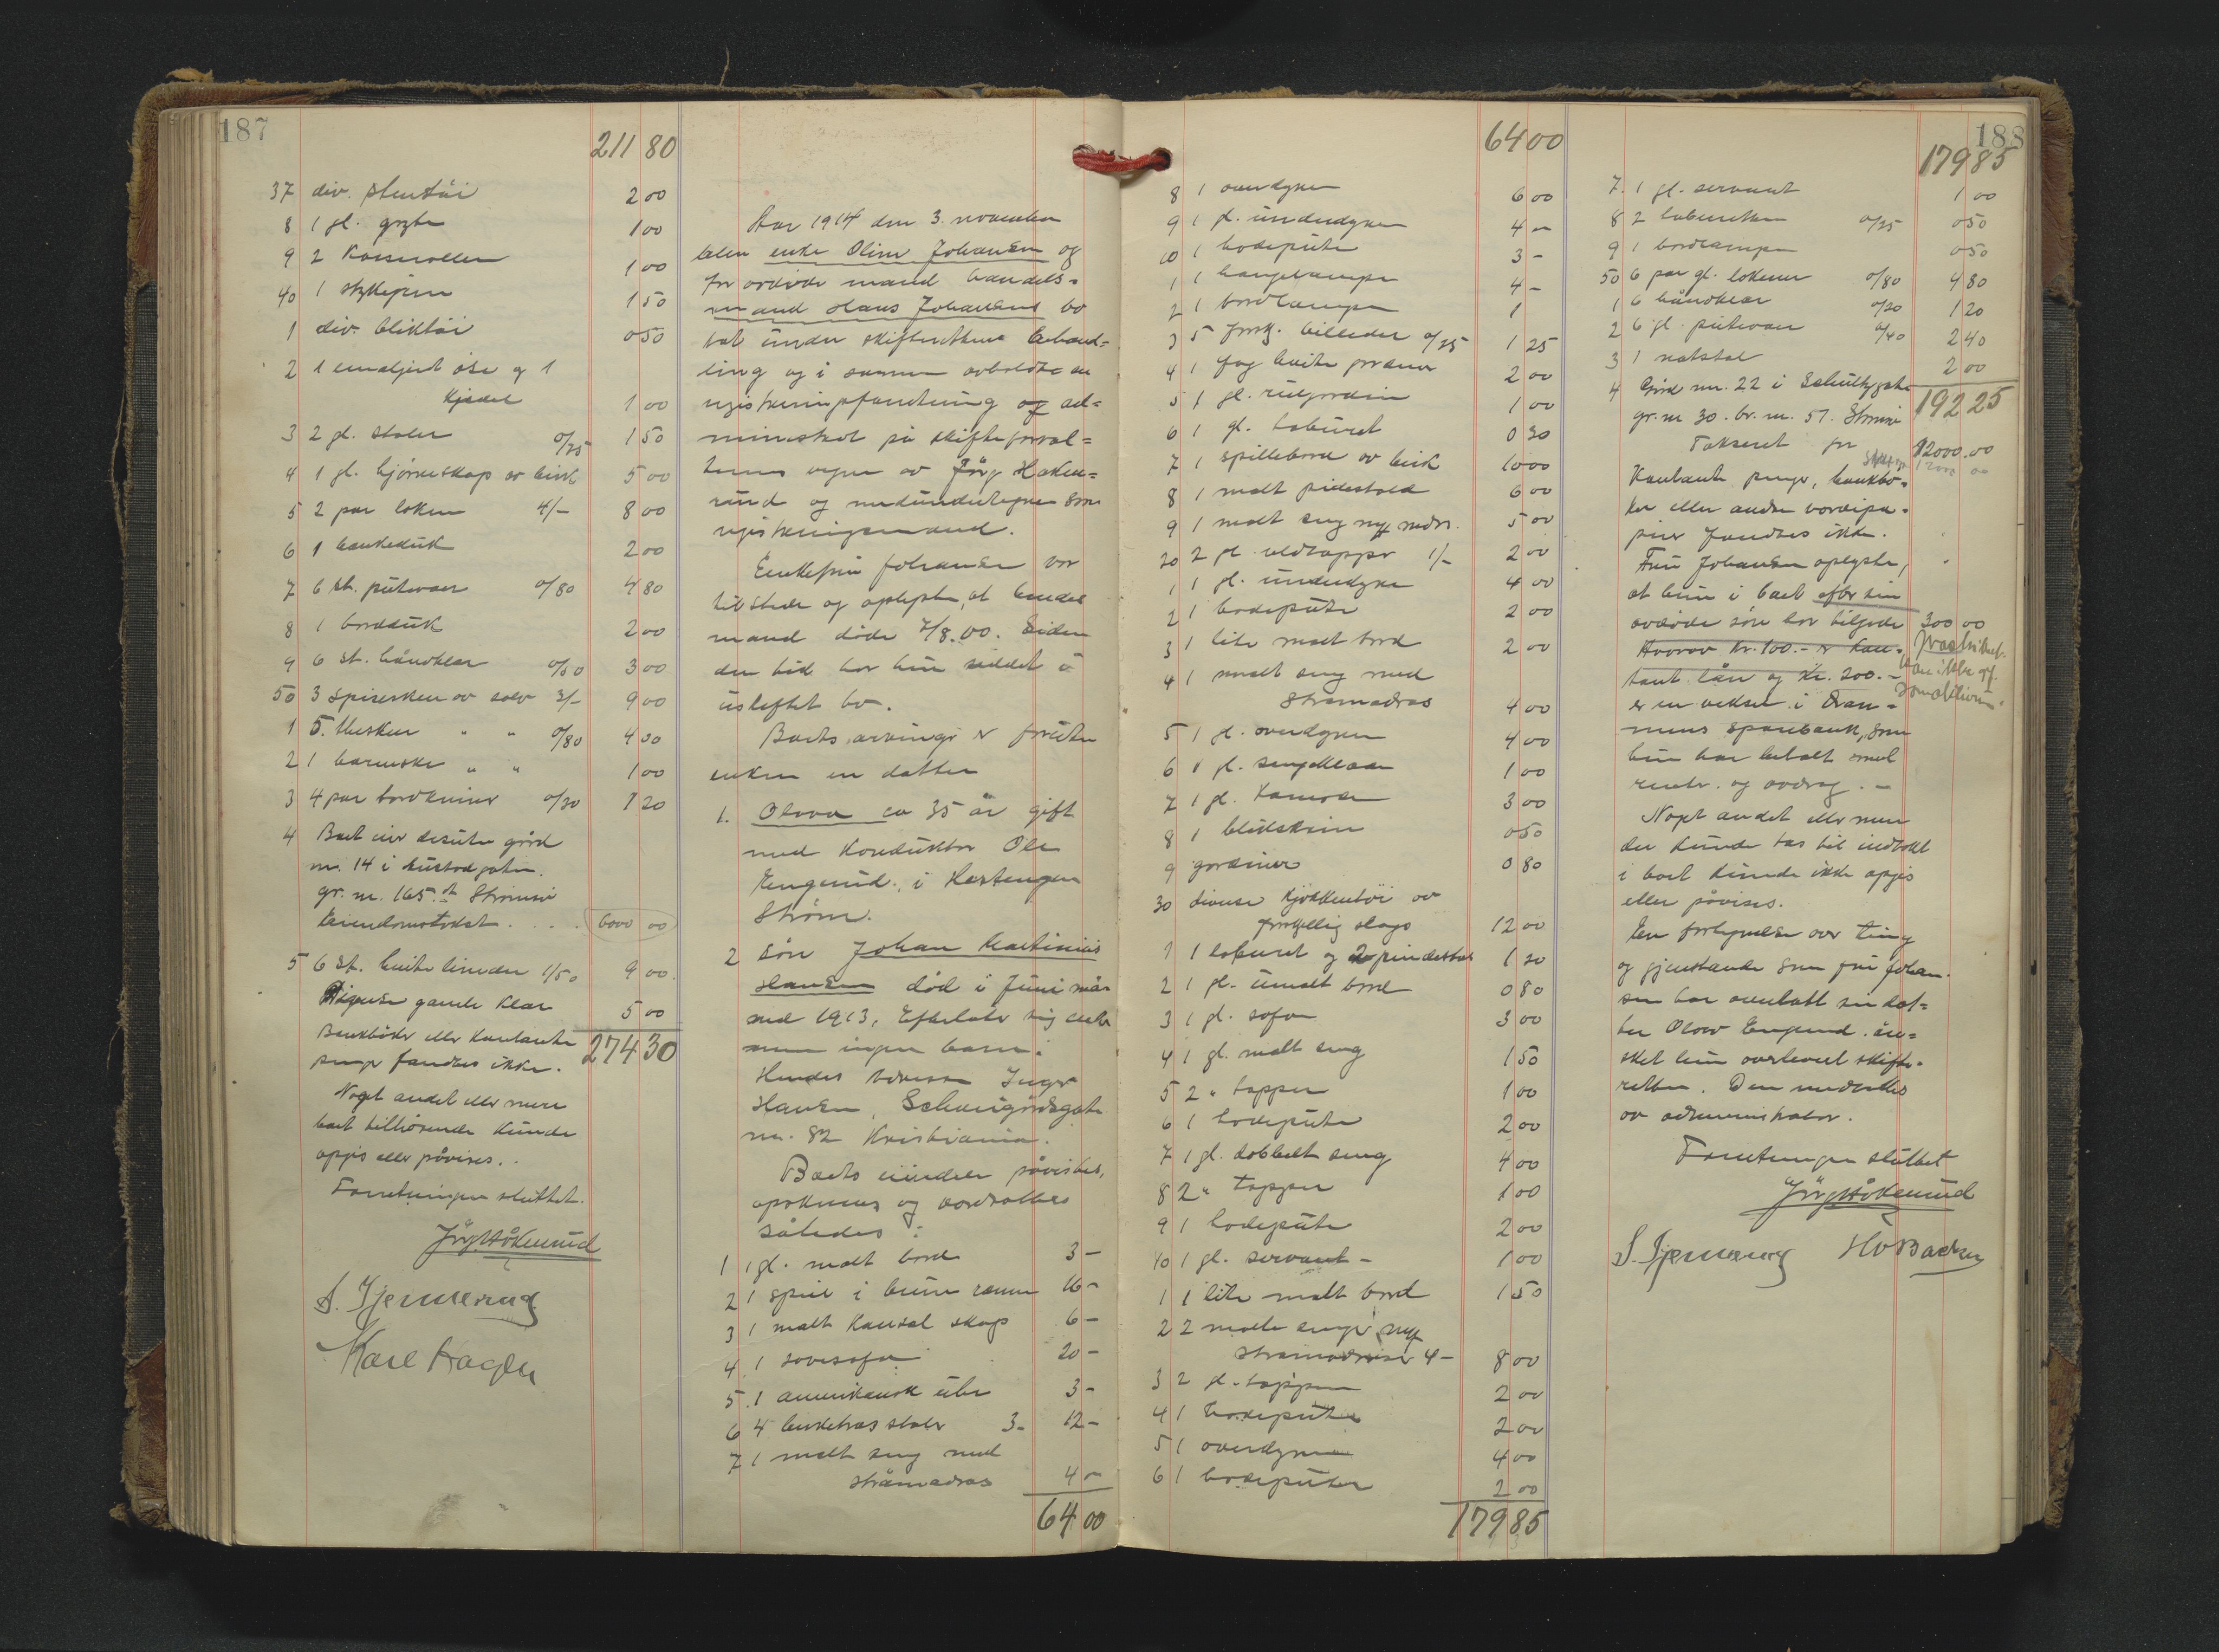 187
211 80
37 div. stentøi 2 00
8 1 gl. gryte 1 00
9 2 Kasseroller 1 00
40 1 strykejern 1 50
1 div. bliktøi 0 50
2 1 emaljert øse og 1
Kjedel 1 00
3 2 gl. stoler 0/75 1 50
4 1 gl. hjørneskap av birk 5 00
5 2 par laken 4/- 8 00
6 1 kaukeduk 2 00
7 6 st. putevar 0/80 4 80
8 1 bordduk 2 00
9 6 st. håndklær 0/50 3 00
50 3 spiseskeer av sølv 3/- 9 00
1 5 theskeer " " 0/80 4 00
2 1 barneske " " 1 00
3 4 par bordkniver 0/30 1 20
4 Boet eier desuten gård
nr. 14 i
gr. nr. 165 Strømsø
Eiendomstakst . . . 6000 00
5 6 st. hvite linneder 1/50 9 00
gamle klær 5 00
Bankbøker eller kontante 274 30
penge fandtes ikke.
Noget andet eller mere
boet tilhørende kunde
opgis eller påvises.
Forretningen sluttet.
Jørg. Håkenrud
S. Gjennerud
Karl Hagen
Aar 1914 den 3. november
blev enke Oline Johansen og
før avdøde mand handels-
mand Hans Johansens bo
tat under skifterettens behand-
ling og i samme avholdtes en
registreringsforretning og ad-
ministrert på skifteforval-
terens vegne av Jørg Haken-
rud og medundertegnede som
registreringsmænd.
Enkefru Johansen var
tilstede og oplyste, at hendes
mand døde 7/8.00. Siden
den tid har hun siddet i
uskiftet bo.
Boets arvinger er foruten
enken en datter
1. Olava ca 35 år gift
med Konduktør Ole
Engerud, i
Strøm.
2 søn Johan Martinius
Hansen død i Juni må-
ned 1913. Efterlater sig enke
men ingen barn.
Hendes adresse Inger
Hansen, Schweigårdsgate
nr. 82 Kristiania.
Boets eiendeler påvistes,
opskreves og værdsattes
således:
1 1 gl. malt bord 3 -
2 1 speil i brun ramme 16 -
3 1 malt Konsol skap 6 -
4 1 sovesofa 20 -
5 1 amerikansk uhr 3 -
6 4 birketræs stoler 3- 12 -
7 1 malt seng med
stråmadras 4 -
64 00
64 00
8 1 overdyne 6 00
9 1 gl. underdyne 4 -
10 1 hodepute 3 -
1 1 hængelampe 4 -
2 1 bordlampe 1
3 5 forsk. billeder 0/25 1 25
4 1 fag hvite gardiner 2 00
5 1 gl. rulgardin 1 00
6 1 gl. taburet 0 30
7 1 spillebord av birk 10 00
8 1 malt pidestald 6 00
9 1 malt seng m/ madr. 5 00
20 2 gl. uldtæpper 1/- 2 00
1 1 gl. underdyne 4 00
2 1 hodepute 2 00
3 1 lite malt bord 2 00
4 1 malt seng med
stråmadras 4 00
5 1 gl. overdyne 4 00
6 1 gl. sengeklær 1 00
7 1 gl. Kamode 3 00
8 1 blikskrin 0 50
9 gardiner 0 80
30 diverse Kjøkkentøi av
forskjellig slags 12 00
1 1 taburet og 2 pindestoler 1 20
2 1 gl. umalt bord 0 80
3 1 gl. sofa 3 00
4 1 gl. malt seng 1 50
5 2 " tæpper 1 00
6 1 hodepute 2 00
7 1 gl. dobbelt seng 4 00
8 2 " tæpper 1 00
9 1 hodepute 2 00
40 1 gl. servant - 1 00
1 1 lite malt bord 1 50
2 2 malte senger m/
stråmadrasser 4- 8 00
3 2 gl. tæpper 2 00
4 1 hodepute 2 00
5 1 overdyne 4 00
6 1 hodepute 2 00
179 85
188
179 85
7 1 gl. servant 1 00
8 2 taburetter 0/25 0 50
9 1 bordlampe 0 50
50 6 par gl. lakener 0/80 4 80
1 6 håndklær 0/20 1 20
2 6 gl. putevar 0/40 2 40
3 1 natstol 2 00
192 25
4 Gård nr. 22 i Schultzgate
gr. nr 30. br. nr. 51. Strømsø
Takseret for 12000.00
12000 00
Kontante penger, bankbø-
ker eller andre værdipa-
pirer fandtes ikke.
Fru Johansen oplyste,
at hun i boet efter sin
avdøde søn har tilgode 300 00
Hvorav Kr. 100.- er kon-
tant lån og Kr. 200.-
er en veksel i Dram-
mens Sparebank, som
hun har betalt med
renter og avdrag. -
Noget andet eller mere
der kunde tas til indtækt
i boet kunde ikke opgis
eller påvises.
En fortegnelse over ting
og gjenstande som fru Johan-
sen har overlatt sin dat-
ter Olava Engerud øn-
sket hun overlevert skifte-
retten. Den medsendes
av administrator.
Forretningen sluttet
Jørg. Håkenrud
S. Gjennerud HO Backer